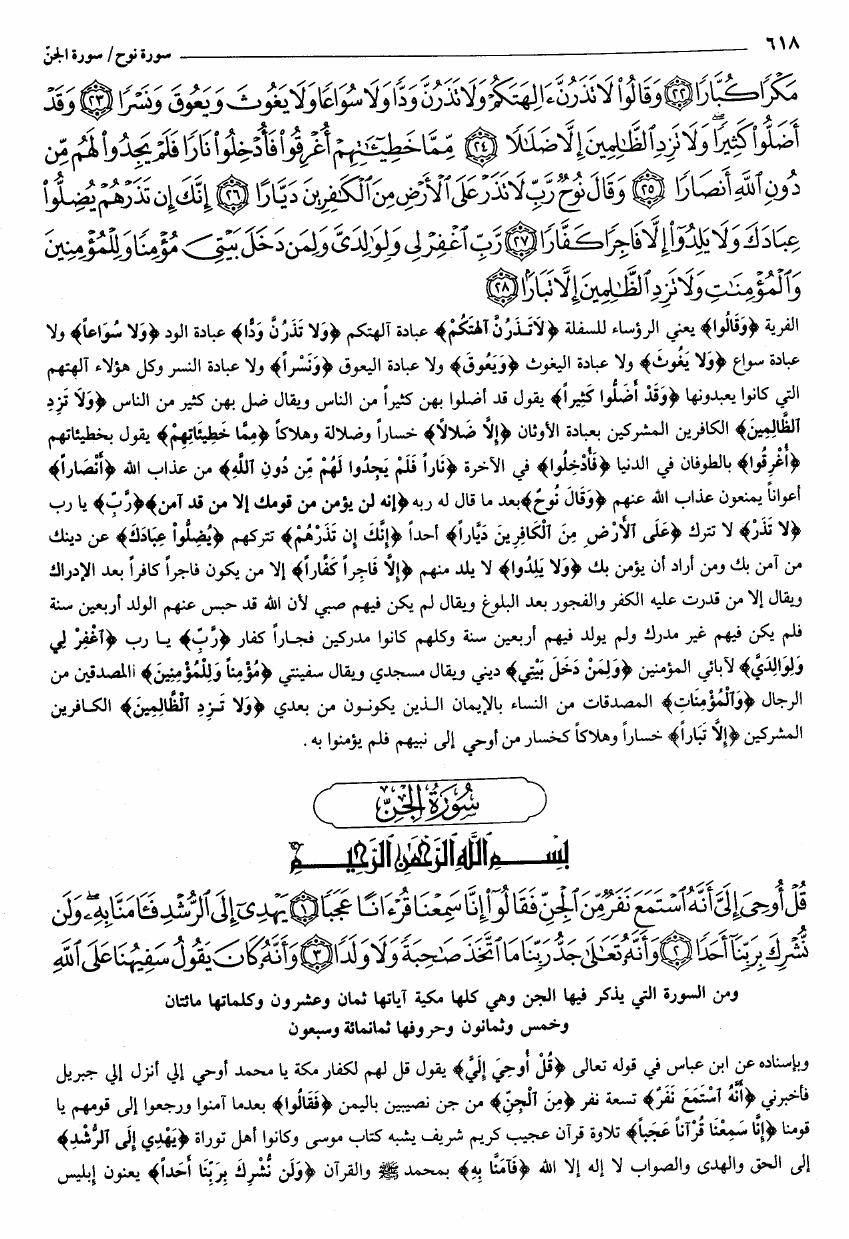 ٦١٨
سورة نوح/ سورة الجنّ
مَكْرًا كُبَّارًا ﴿٢٢﴾ وَقَالُوا۟ لَا تَذَرُنَّ ءَالِهَتَكُمْ وَلَا تَذَرُنَّ وَدًّا وَلَا سُوَاعًا وَلَا يَغُوثَ وَيَعُوقَ وَنَسْرًا ﴿٢٣﴾ وَقَدْ
أَضَلُّوا۟ كَثِيرًا ۖ وَلَا تَزِدِ ٱلظَّٰلِمِينَ إِلَّا ضَلَٰلًا ﴿٢٤﴾ مِّمَّا خَطِيٓـَٰٔتِهِمْ أُغْرِقُوا۟ فَأُدْخِلُوا۟ نَارًا فَلَمْ يَجِدُوا۟ لَهُم مِّن
دُونِ ٱللَّهِ أَنصَارًا ﴿٢٥﴾ وَقَالَ نُوحٌ رَّبِّ لَا تَذَرْ عَلَى ٱلْأَرْضِ مِنَ ٱلْكَٰفِرِينَ دَيَّارًا ﴿٢٦﴾ إِنَّكَ إِن تَذَرْهُمْ يُضِلُّوا۟
عِبَادَكَ وَلَا يَلِدُوٓا۟ إِلَّا فَاجِرًا كَفَّارًا ﴿٢٧﴾ رَّبِّ ٱغْفِرْ لِى وَلِوَٰلِدَىَّ وَلِمَن دَخَلَ بَيْتِىَ مُؤْمِنًا وَلِلْمُؤْمِنِينَ
وَٱلْمُؤْمِنَٰتِ وَلَا تَزِدِ ٱلظَّٰلِمِينَ إِلَّا تَبَارًۢا ﴿٢٨﴾
الفرية ﴿وَقَالُوا﴾ يعني الرؤساء للسفلة ﴿لَاتَـذَرُنَّ آلهتَكُمْ﴾ عبادة آلهتكم ﴿وَلا تَذَرُنَّ وَدًّا﴾ عبادة الود ﴿وَلا سُوَاعاً﴾ ولا
عبادة سواع ﴿وَلا يَغُوثَ﴾ ولا عبادة اليغوث ﴿وَيَعُوقَ﴾ ولا عبادة اليعوق ﴿وَنَسْراً﴾ ولا عبادة النسر وكل هؤلاء آلهتهم
التي كانوا يعبدونها ﴿وَقَدْ أَضَلُّوا كَثِيراً﴾ يقول قد أضلوا بهن كثيراً من الناس ويقال ضل بهن كثير من الناس ﴿وَلَا تَزِدِ
ٱلظَّالِمِينَ﴾ الكافرين المشركين بعبادة الأوثان ﴿إِلَّا ضَلالاً﴾ خساراً وضلالة وهلاكاً ﴿مِمَّا خَطِيئَاتِهِمْ﴾ يقول بخطيئاتهم
﴿أُغْرِقُوا﴾ بالطوفان في الدنيا ﴿فَأُدْخِلُوا﴾ في الآخرة ﴿نَاراً فَلَمْ يَجِدُوا لَهُمْ مِّن دُونِ ٱللَّهِ﴾ من عذاب الله ﴿أَنْصَاراً﴾
أعواناً يمنعون عذاب الله عنهم ﴿وَقَالَ نُوحُ﴾بعد ما قال له ربه﴿إنه لن يؤمن من قومك إلا من قد آمن﴾﴿رَّبِّ﴾ يا رب
﴿لا تَذَرْ﴾ لا تترك ﴿عَلَى ٱلأَرْضِ مِنَ ٱلْكَافِرِينَ دَيَّاراً﴾ أحداً ﴿إِنَّكَ إِن تَذَرْهُمْ﴾ تتركهم ﴿يُضِلُّواْ عِبَادَكَ﴾ عن دينك
من آمن بك ومن أراد أن يؤمن بك ﴿وَلا يَلِدُوا﴾ لا يلد منهم ﴿إِلَّا فَاجِراً كَفَّاراً﴾ إلا من يكون فاجراً كافراً بعد الإدراك
ويقال إلا من قدرت عليه الكفر والفجور بعد البلوغ ويقال لم يكن فيهم صبي لأن الله قد حبس عنهم الولد أربعين سنة
فلم يكن فيهم غير مدرك ولم يولد فيهم أربعين سنة وكلهم كانوا مدركين فجـاراً كفار ﴿رَّبِّ﴾ يـا رب ﴿ٱغْفِرْ لِي
وَلِوَالِدَيَّ﴾ لآبائي المؤمنين ﴿وَلِمَنْ دَخَلَ بَيْتِي﴾ ديني ويقال مسجدي ويقال سفينتي ﴿مُؤْمِناً وَلِلْمُؤْمِنِينَ﴾ االمصدقين من
الرجال ﴿وَٱلْمُؤْمِنَاتِ﴾ المصدقات من النساء بالإيمان الـذين يكونـون من بعدي ﴿وَلا تَـزِدِ ٱلظَّالِمِينَ﴾ الكـافرين
المشركين ﴿إِلَّا تَبَاراً﴾ خساراً وهلاكاً كخسار من أوحي إلى نبيهم فلم يؤمنوا به.
سُورَةُ الجِنّ
بِسْمِ ٱللَّهِ ٱلرَّحْمَٰنِ ٱلرَّحِيمِ
قُلْ أُوحِىَ إِلَىَّ أَنَّهُ ٱسْتَمَعَ نَفَرٌ مِّنَ ٱلْجِنِّ فَقَالُوٓا۟ إِنَّا سَمِعْنَا قُرْءَانًا عَجَبًا ﴿١﴾ يَهْدِىٓ إِلَى ٱلرُّشْدِ فَـَٔامَنَّا بِهِۦ ۖ وَلَن
نُّشْرِكَ بِرَبِّنَآ أَحَدًا ﴿٢﴾ وَأَنَّهُۥ تَعَٰلَىٰ جَدُّ رَبِّنَا مَا ٱتَّخَذَ صَٰحِبَةً وَلَا وَلَدًا ﴿٣﴾ وَأَنَّهُۥ كَانَ يَقُولُ سَفِيهُنَا عَلَى ٱللَّهِ
ومن السورة التي يذكر فيها الجن وهي كلها مكية آياتها ثمان وعشرون وكلماتها مائتان
وخمس وثمانون وحروفها ثمانمائة وسبعون
وبإسناده عن ابن عباس في قوله تعالى ﴿قُلْ أُوحِيَ إِلَيَّ﴾ يقول قل لهم لكفار مكة يا محمد أوحي إلي أنزل إلي جبريل
فأخبرني ﴿أَنَّهُ ٱسْتَمَعَ نَفَرٌ﴾ تسعة نفر ﴿مِنَ ٱلْجِنِّ﴾ من جن نصيبين باليمن ﴿فَقَالُوا﴾ بعدما آمنوا ورجعوا إلى قومهم يا
قومنا ﴿إِنَّا سَمِعْنَا قُرْآناً عَجَباً﴾ تلاوة قرآن عجيب كريم شريف يشبه كتاب موسى وكانوا أهل توراة ﴿يَهْدِي إِلَى ٱلرُّشْدِ﴾
إلى الحق والهدى والصواب لا إله إلا الله ﴿فَآمَنَّا بِهِ﴾ بمحمد ﷺ والقرآن ﴿وَلَن نُّشْرِكَ بِرَبِّنَا أَحَداً﴾ يعنون إبليس